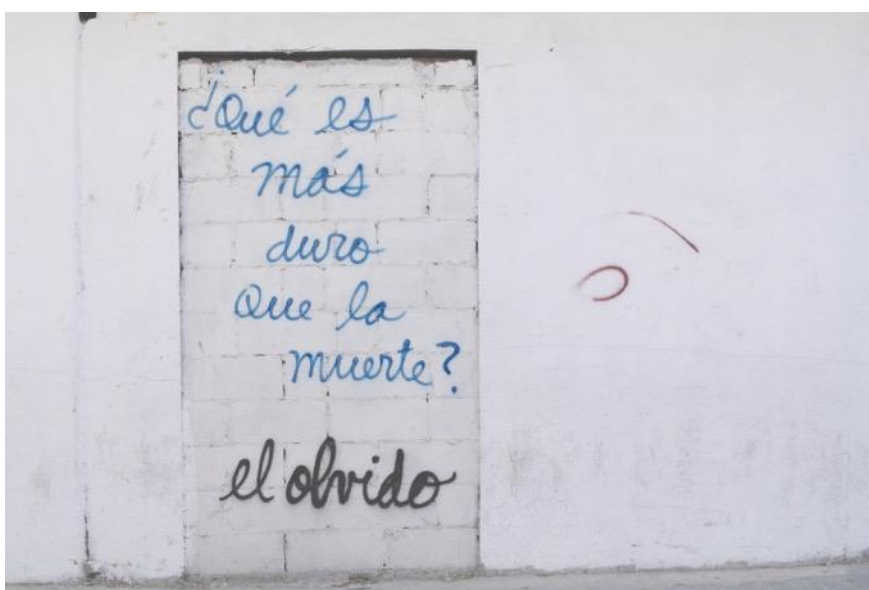 ¿Qué es
más
duro
que la
muerte?
el olvido